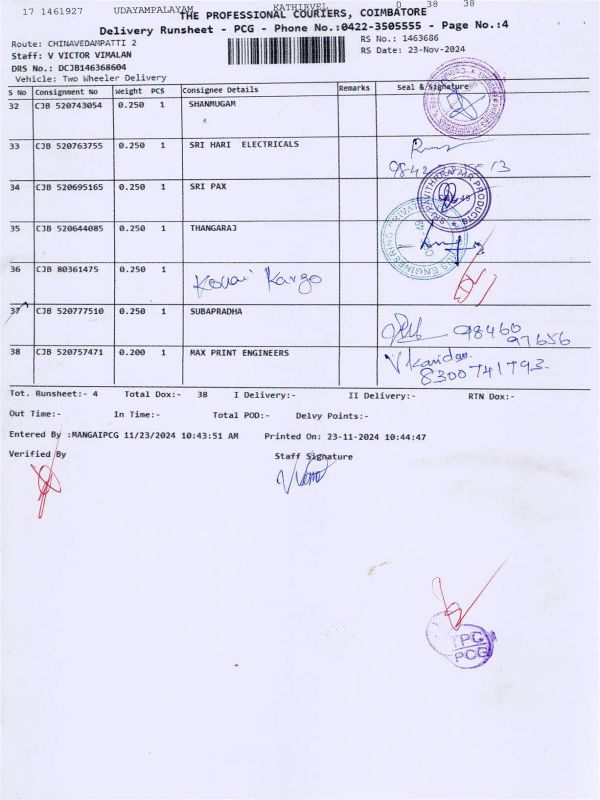 17 1461927 UDAYAMPALAYAM KATHIRVEL 0 38 38
THE PROFESSIONAL COURIERS, COIMBATORE
Delivery Runsheet - PCG - Phone No.:0422-3505555 - Page No.:4
Route: CHINAVEDAMPATTI 2 RS No.: 1463686
Staff: V VICTOR VIMALAN RS Date: 23-Nov-2024
DRS No.: DCJB146368604
Vehicle: Two Wheeler Delivery
S No Consignment No Weight PCS Consignee Details Remarks Seal & Signature
32 CJB 520743054 0.250 1 SHANMUGAM
33 CJB 520763755 0.250 1 SRI HARI ELECTRICALS
34 CJB 520695165 0.250 1 SRI PAX
SRI PAVITHRAA MR PRODUCTS
35 CJB 520644085 0.250 1 THANGARAJ
36 CJB 80361475 0.250 1 Kovai Kargo
37 CJB 520777510 0.250 1 SUBAPRADHA 98460
97656
38 CJB 520757471 0.200 1 MAX PRINT ENGINEERS
8300741793
Tot. Runsheet:- 4 Total Dox:- 38 I Delivery:- II Delivery:- RTN Dox:-
Out Time:- In Time:- Total POD:- Delvy Points:-
Entered By :MANGAIPCG 11/23/2024 10:43:51 AM Printed On: 23-11-2024 10:44:47
Verified By Staff Signature
TPC
PCG